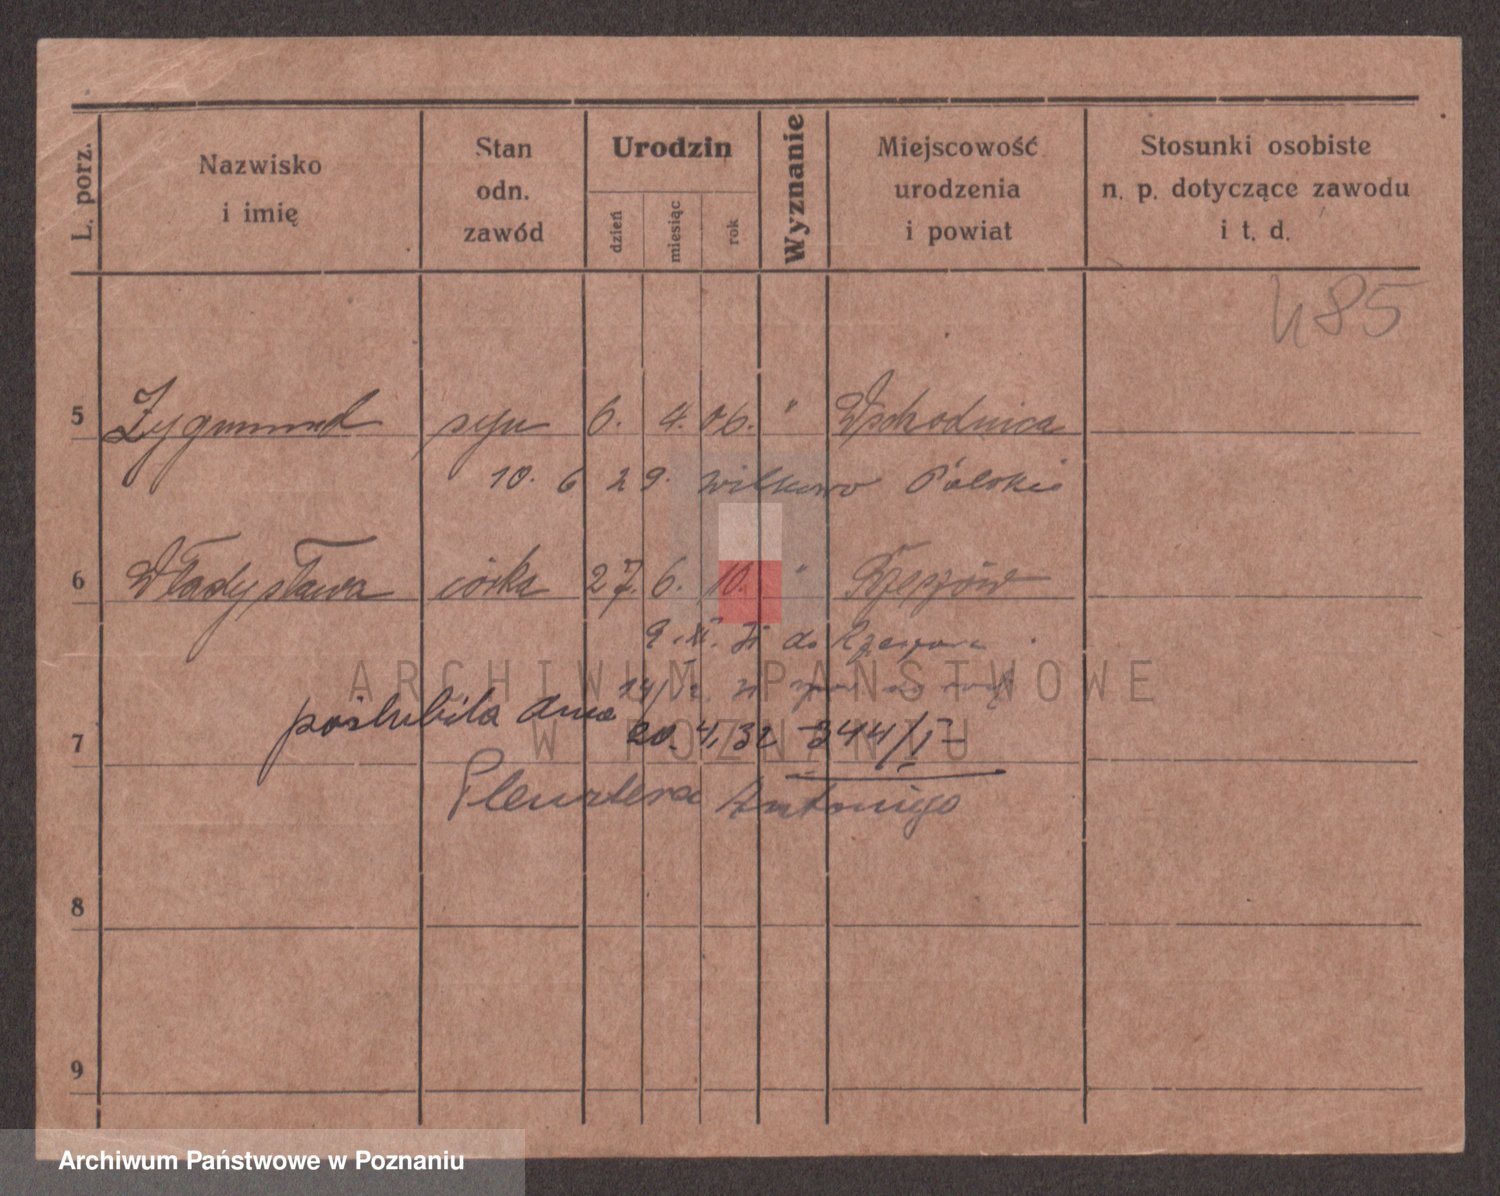 L. porz.
Nazwisko i imię
Stan odn. zawód
Urodzin
dzień
miesiąc
rok
Wyznanie
Miejscowość urodzenia i powiat
Stosunki osobiste n. p. dotyczące zawodu i t. d.
485
5 Zygmund syn 6. 4. 06. " Wschodnica
10. 6 29. Wilkowo Polskie
6 Władysława córka 27. 6. 10. " Rzeszów
9. XI. 31 do Rzeszowa
ARCHIWUM PAŃSTWOWE
poślubiła dnia 20. 4. 32 344/I
W POZNANIU
7
Antoniego
8
9
Archiwum Państwowe w Poznaniu